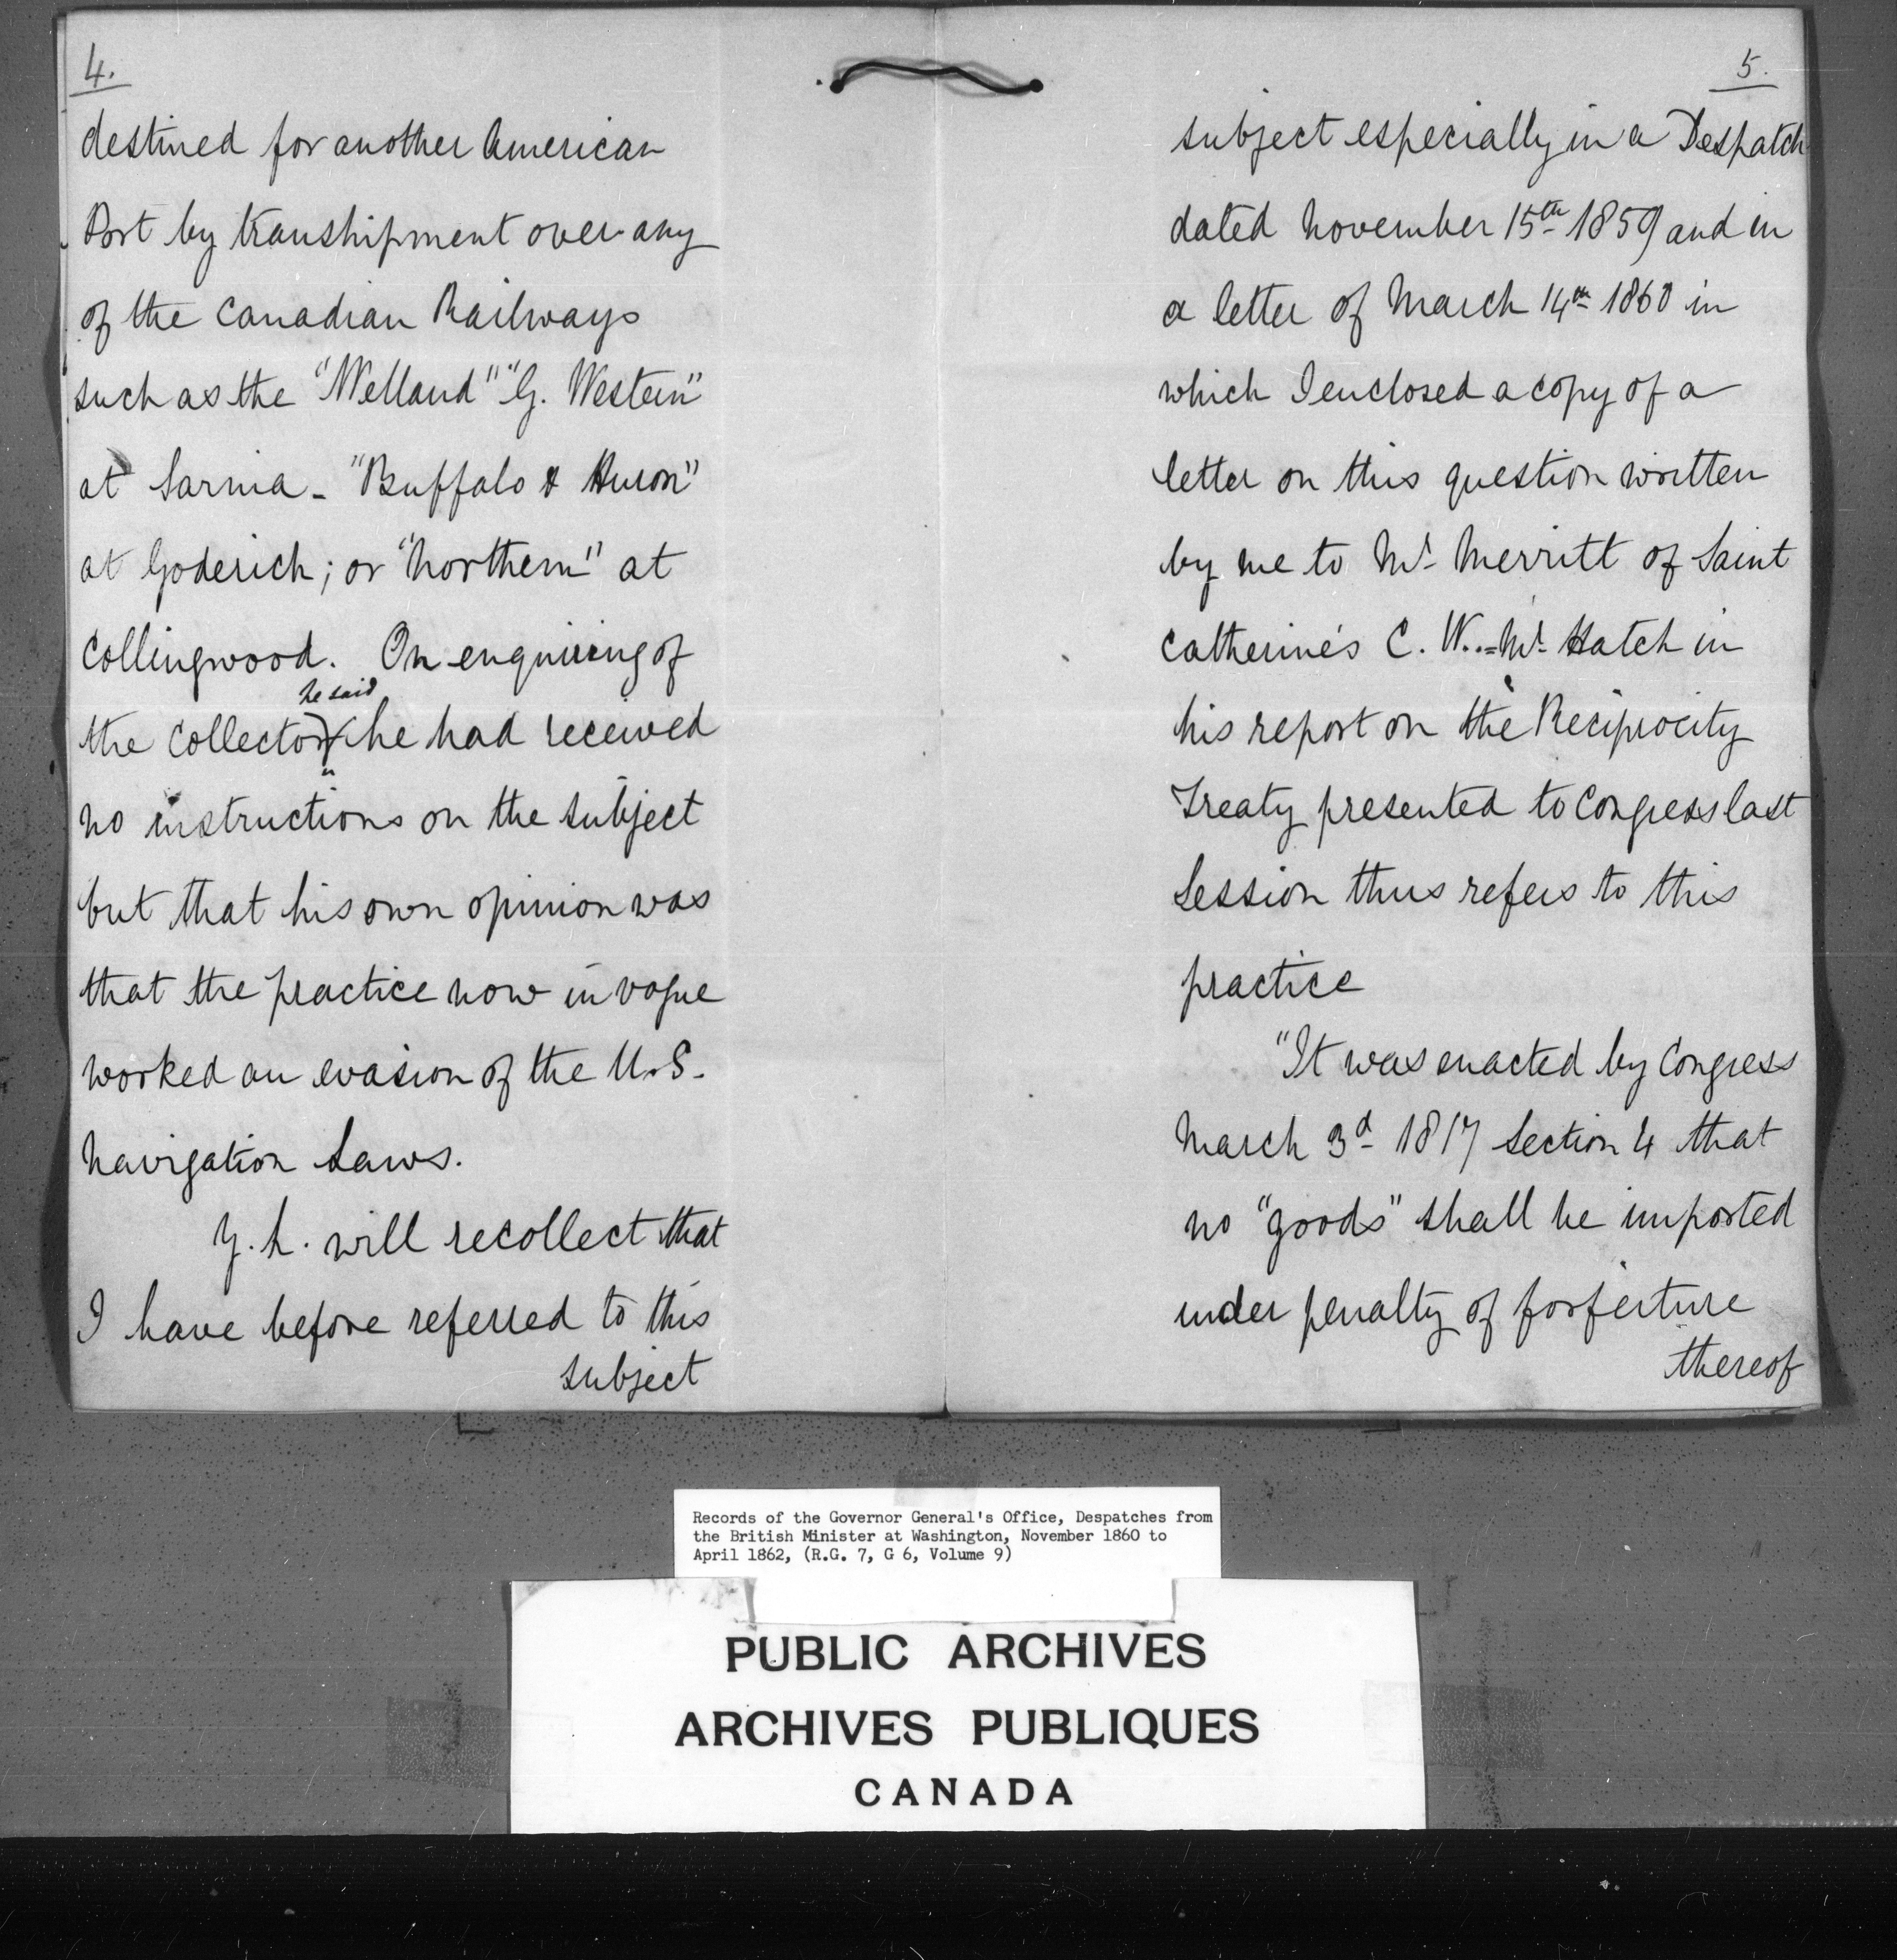 4.
destined for another American
Port by transhipment over any
of the Canadian Railways
such as the "Welland" "G. Western"
at Sarnia - "Buffalo & Huron"
at Goderich; or "Northern" at
Collingwood. On enquiring of
he said
the Collector he had received
no instructions on the subject
but that his own opinion was
that the practice now in vogue
worked an evasion of the U.S.
Navigation Laws.
Y. L. will recollect that
I have before referred to this
subject
5.
subject especially in a Despatch
dated November 15th 1859 and in
a letter of March 14th 1860 in
which I enclosed a copy of a
letter on this question written
by me to Mr Merritt of Saint
Catherine's C. W.. = Mr Hatch in
his report on the Reciprocity
Treaty presented to Congress last
Session thus refers to this
practice
"It was enacted by Congress
March 3d 1817 Section 4 that
no "goods" shall be imported
under penalty of forfeiture
thereof
Records of the Governor General's Office, Despatches from
the British Minister at Washington, November 1860 to
April 1862, (R.G. 7, G 6, Volume 9)
PUBLIC ARCHIVES
ARCHIVES PUBLIQUES
CANADA